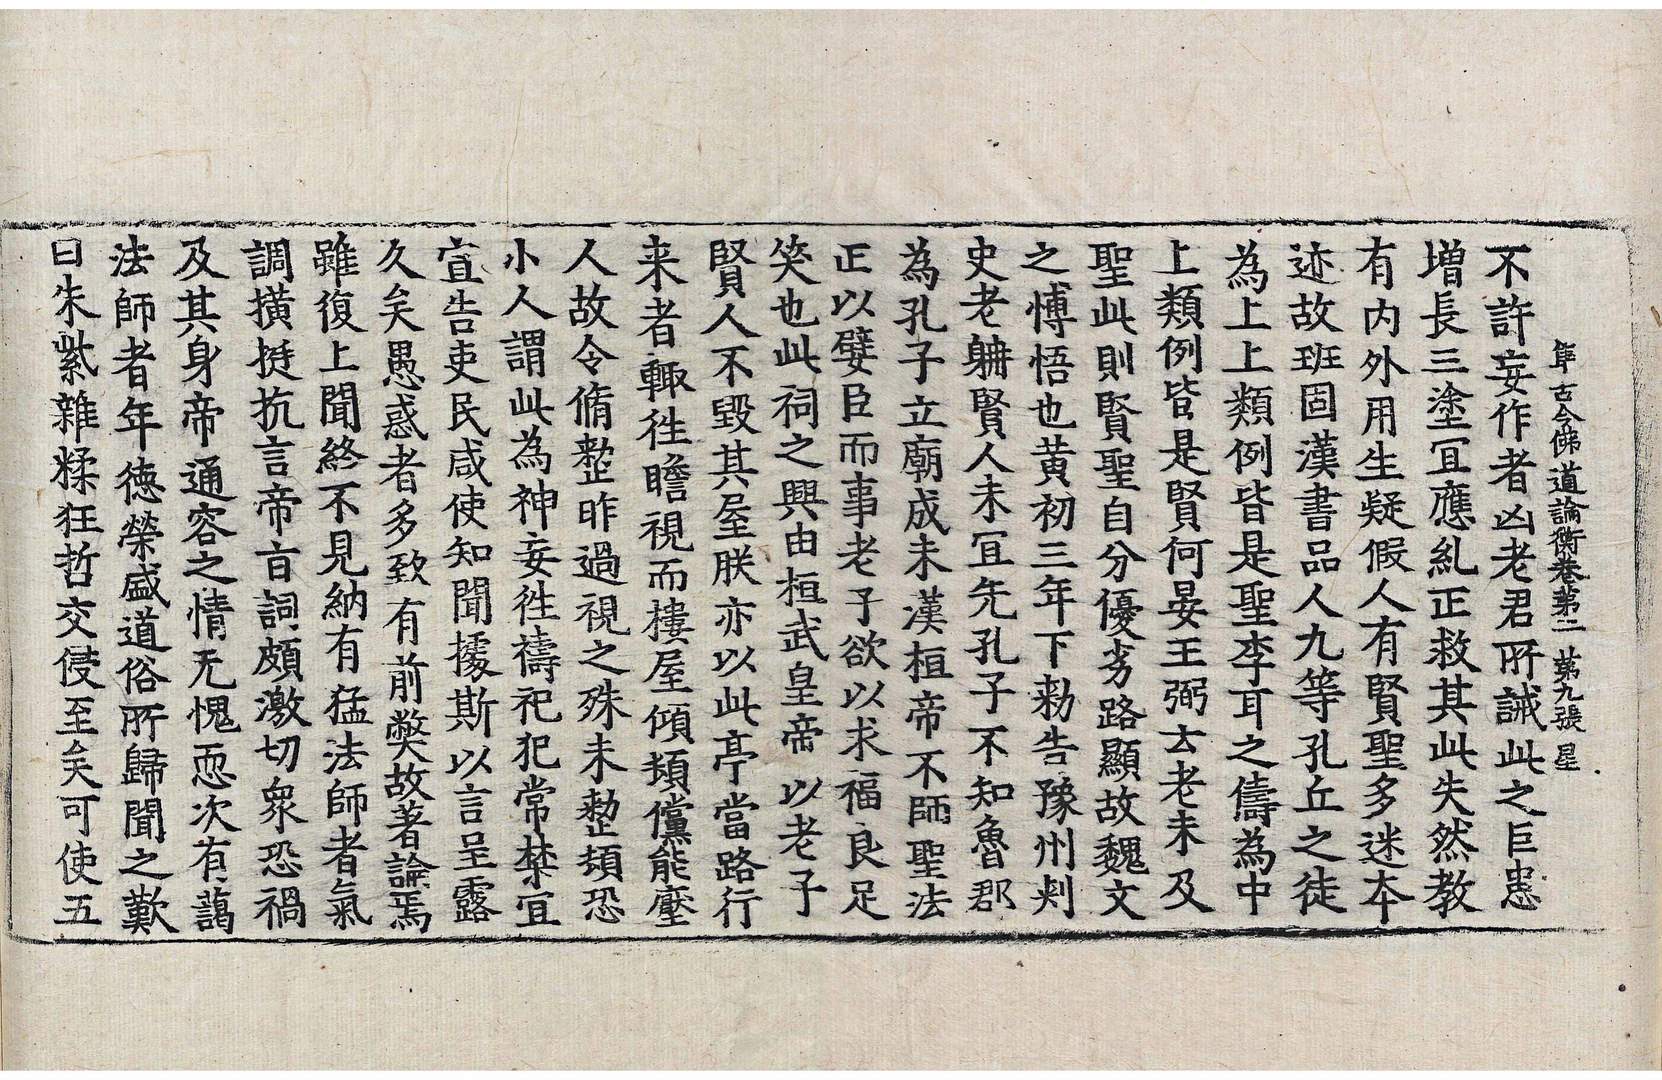 集古今佛道論衡卷第二 第九張 星
不許妄作者凶老君所誡此之巨患
增長三塗冝應糺正救其此失然教
有内外用生疑假人有賢聖多迷本
迹故班固漢書品人九等孔丘之徒
為上上類例皆是聖李耳之儔為中
上類例皆是賢何晏王弼云老未及
聖此則賢聖自分優劣路顯故魏文
之愽悟也黄初三年下勑告豫州刾
史老耼賢人未冝先孔子不知魯郡
為孔子立廟成未漢桓帝不師聖法
正以嬖臣而事老子欲以求福良足
笑也此祠之興由桓武皇帝以老子
賢人不毀其屋朕亦以此亭當路行
来者輙徃瞻視而樓屋傾頽儻能壓
人故令脩整昨過視之殊未整頓恐
小人謂此為神妄徃禱祀犯常禁冝
宣告吏民咸使知聞據斯以言呈露
久矣愚惑者多致有前獘故著論焉
雖復上聞終不見納有猛法師者氣
調橫挺抗言帝旨詞頗激切衆恐禍
及其身帝通容之情无愧恧次有藹
法師者年德榮盛道俗所歸聞之歎
曰朱紫雜糅狂哲交侵至矣可使五